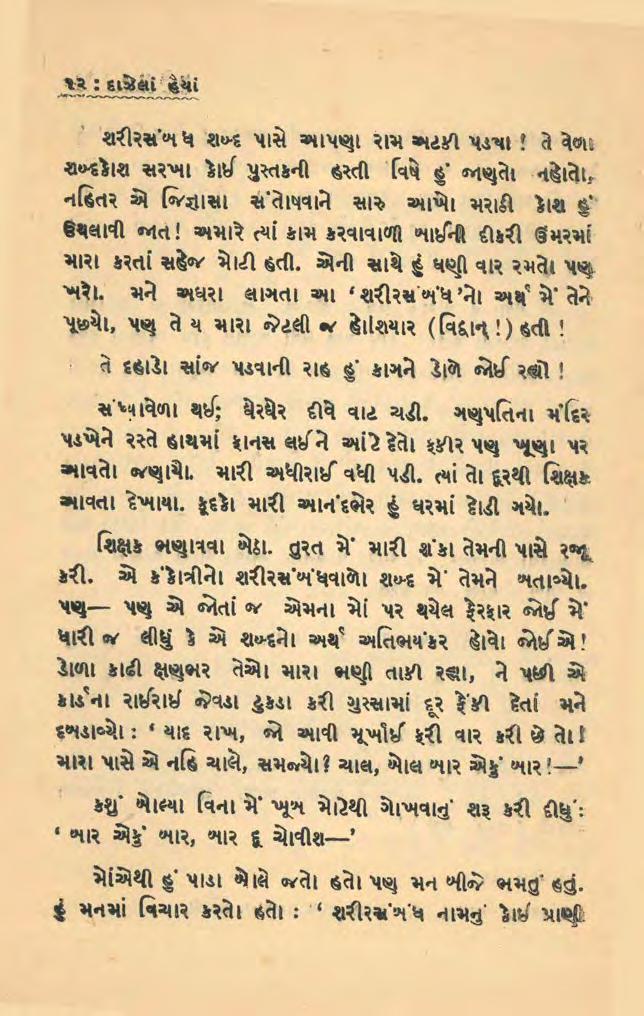 ૧૨ : દાઝેલાં હૈયાં
શરીરસંબંધ શબ્દ પાસે આપણા રામ અટકી પડયા ! તે વેળા
શબ્દકોશ સરખા કોઈ પુસ્તકની હસ્તી વિષે હું જાણતો નહોતો,
નહિતર એ જિજ્ઞાસા સંતોષવાને સારુ આખો મરાઠી કોશ હું
ઉથલાવી જાત! અમારે ત્યાં કામ કરવાવાળી બાઈની દીકરી ઉંમરમાં
મારા કરતાં સહેજ મોટી હતી. એની સાથે હું ઘણી વાર રમતો પણ
ખરો. મને અઘરા લાગતા આ ‘શરીરસંબંધ’નો અર્થ મેં તેને
પૂછ્યો, પણ તે ય મારા જેટલી જ હોશિયાર (વિદ્વાન્!) હતી !
તે દહાડો સાંજ પડવાની રાહ હું કાગને ડોળે જોઈ રહ્યો !
સંધ્યાવેળા થઈ; ઘેરઘેર દીવે વાટ ચડી. ગણપતિના મંદિર
પડખેને રસ્તે હાથમાં ફાનસ લઈને આંટે દેતો ફકીર પણ ખૂણા પર
આવતો જણાયો. મારી અધીરાઈ વધી પડી. ત્યાં તો દૂરથી શિક્ષક
આવતા દેખાયા. કૂદકો મારી આનંદભેર હું ઘરમાં દોડી ગયો.
શિક્ષક ભણાવવા બેઠા. તુરત મેં મારી શંકા તેમની પાસે રજૂ
કરી. એ કંકોત્રીનો શરીરસંબંધવાળો શબ્દ મેં તેમને બતાવ્યો.
પણ— પણ એ જોતાં જ એમના મોં પર થયેલ ફેરફાર જોઈ મેં
ધારી જ લીધું કે એ શબ્દનો અર્થ અતિભયંકર હોવો જોઈએ!
ડોળા કાઢી ક્ષણભર તેઓ મારા ભણી તાકી રહ્યા, ને પછી એ
કાર્ડના રાઈરાઈ જેવડા ટુકડા કરી ગુસ્સામાં દૂર ફેંકી દેતાં મને
દબડાવ્યો : ‘યાદ રાખ, જો આવી મૂર્ખાઈ ફરી વાર કરી છે તો!
મારા પાસે એ નહિ ચાલે, સમજ્યો? ચાલ, બોલ બાર એકું બાર!—’
કશું બોલ્યા વિના મેં ખૂબ મોટેથી ગોખવાનું શરૂ કરી દીધું:
‘બાર એકું બાર, બાર દૂ ચોવીશ—’
મોંએથી હું પાડા બોલે જતો હતો પણ મન બીજે ભમતું હતું.
હું મનમાં વિચાર કરતો હતો : ‘શરીરસંબંધ નામનું કોઈ પ્રાણી